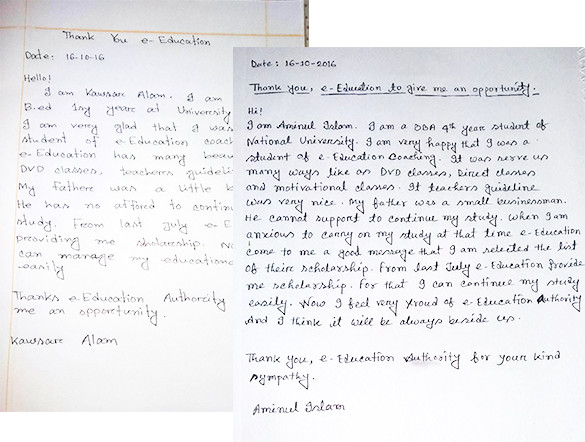 Thank You e-Education
Date: 16-10-16
Hello!
I am Kawsar Alam. I am
B.ed 1sy year at University
I am very glad that I was
student of e-Education coach
e-Education has many beau
DVD classes, teachers guideli
My father was a little b
He has no afford to contin
study. From last July e-E
providing me sholarship. No
can manage my educationa
-easily
Thanks e-Education Authority
me an opportunity.
Kawsar Alam
Date: 16-10-2016
Thank you, e-Education to give me an opportunity.
Hi!
I am Aminul Islam. I am a BBA 4th year student of
National University. I am very happy that I was a
student of e-Education Coaching. It was serve us
many ways like as DVD classes, Direct classes
and motivational classes. It teachers guideline
was very nice. My father was a small businessman.
He cannot support to continue my study. When I am
anxious to carry on my study at that time e-Education
come to me a good message that I am selected the list
of their scholarship. From last July e-Education Provide
me scholarship. For that I can continue my study
easily. Now I feel very proud of e-Education Authority
And I think it will be always beside us.
Thank you, e-Education Authority for your kind
sympathy.
Aminul Islam